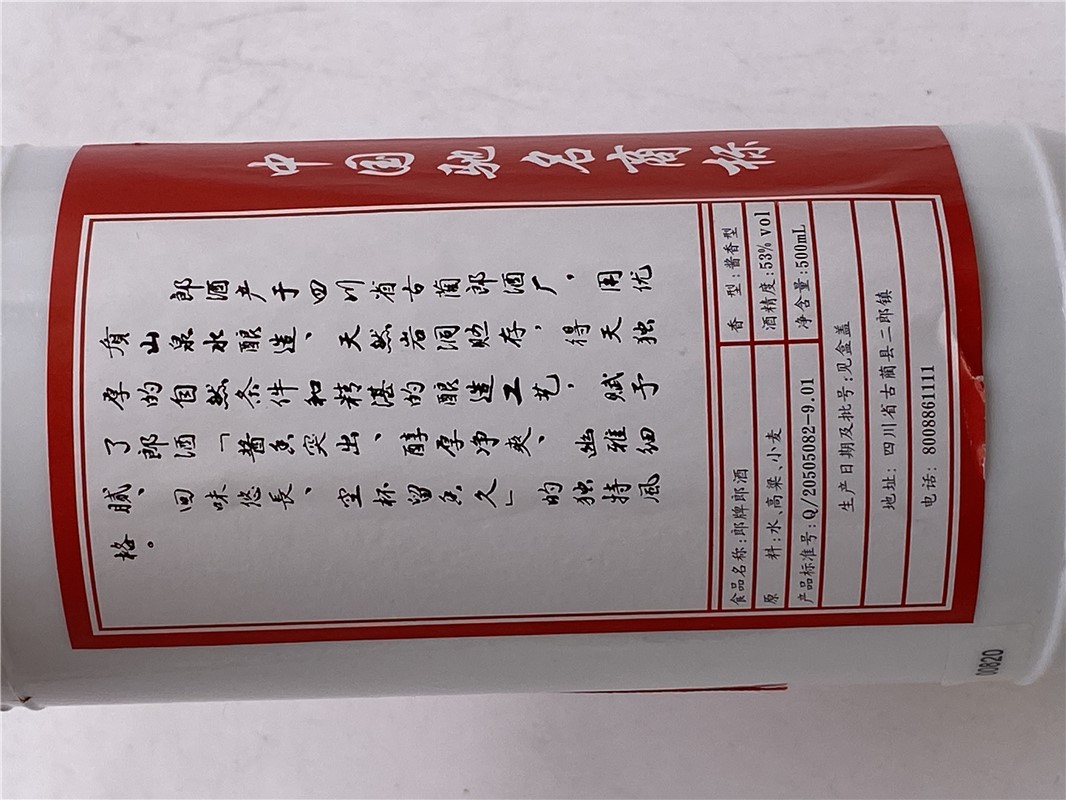 中国驰名商标
郎酒产于四川省古蔺郎酒厂，用优
质山泉水酿造、天然岩洞贮存，得天独
厚的自然条件和精湛的酿造工艺，赋予
了郎酒「酱香突出、醇厚净爽、幽雅细
腻、回味悠長、空杯留香久」的独特风
格。
食品名称:郎牌郎酒 香 型:酱香型
原 料:水、高粱、小麦 酒精度:53% vol
产品标准号:Q/20505082-9.01 净含量:500mL
生产日期及批号:见盒盖
地址: 四川省古蔺县二郎镇
电话: 8008861111
00820